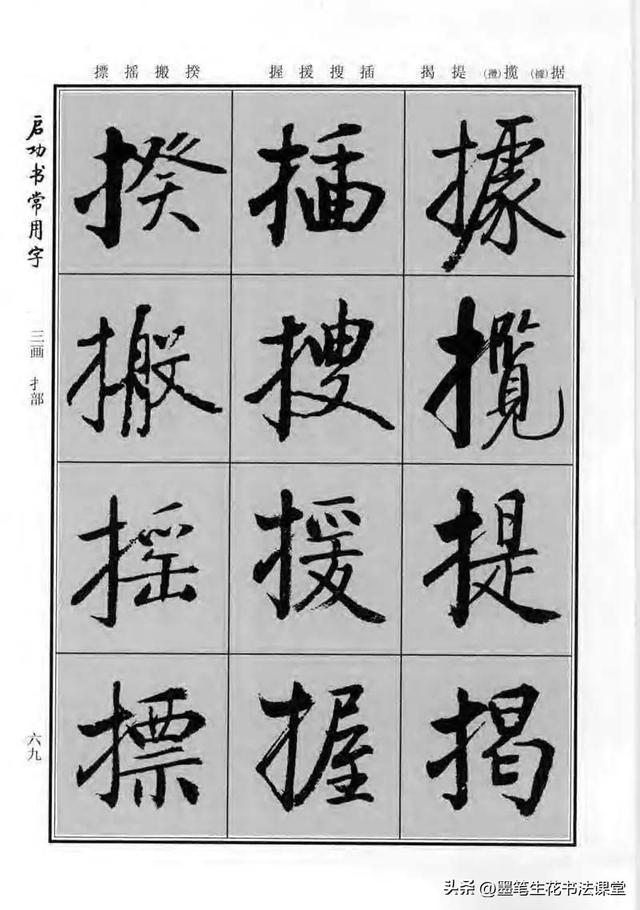 据(據)揽(攬)提揭 插搜援握 揆搬摇摽
據攬提揭
插搜援握
揆搬摇摽
启功书常用字
三画 扌部
六九
头条 @墨笔生花书法课堂